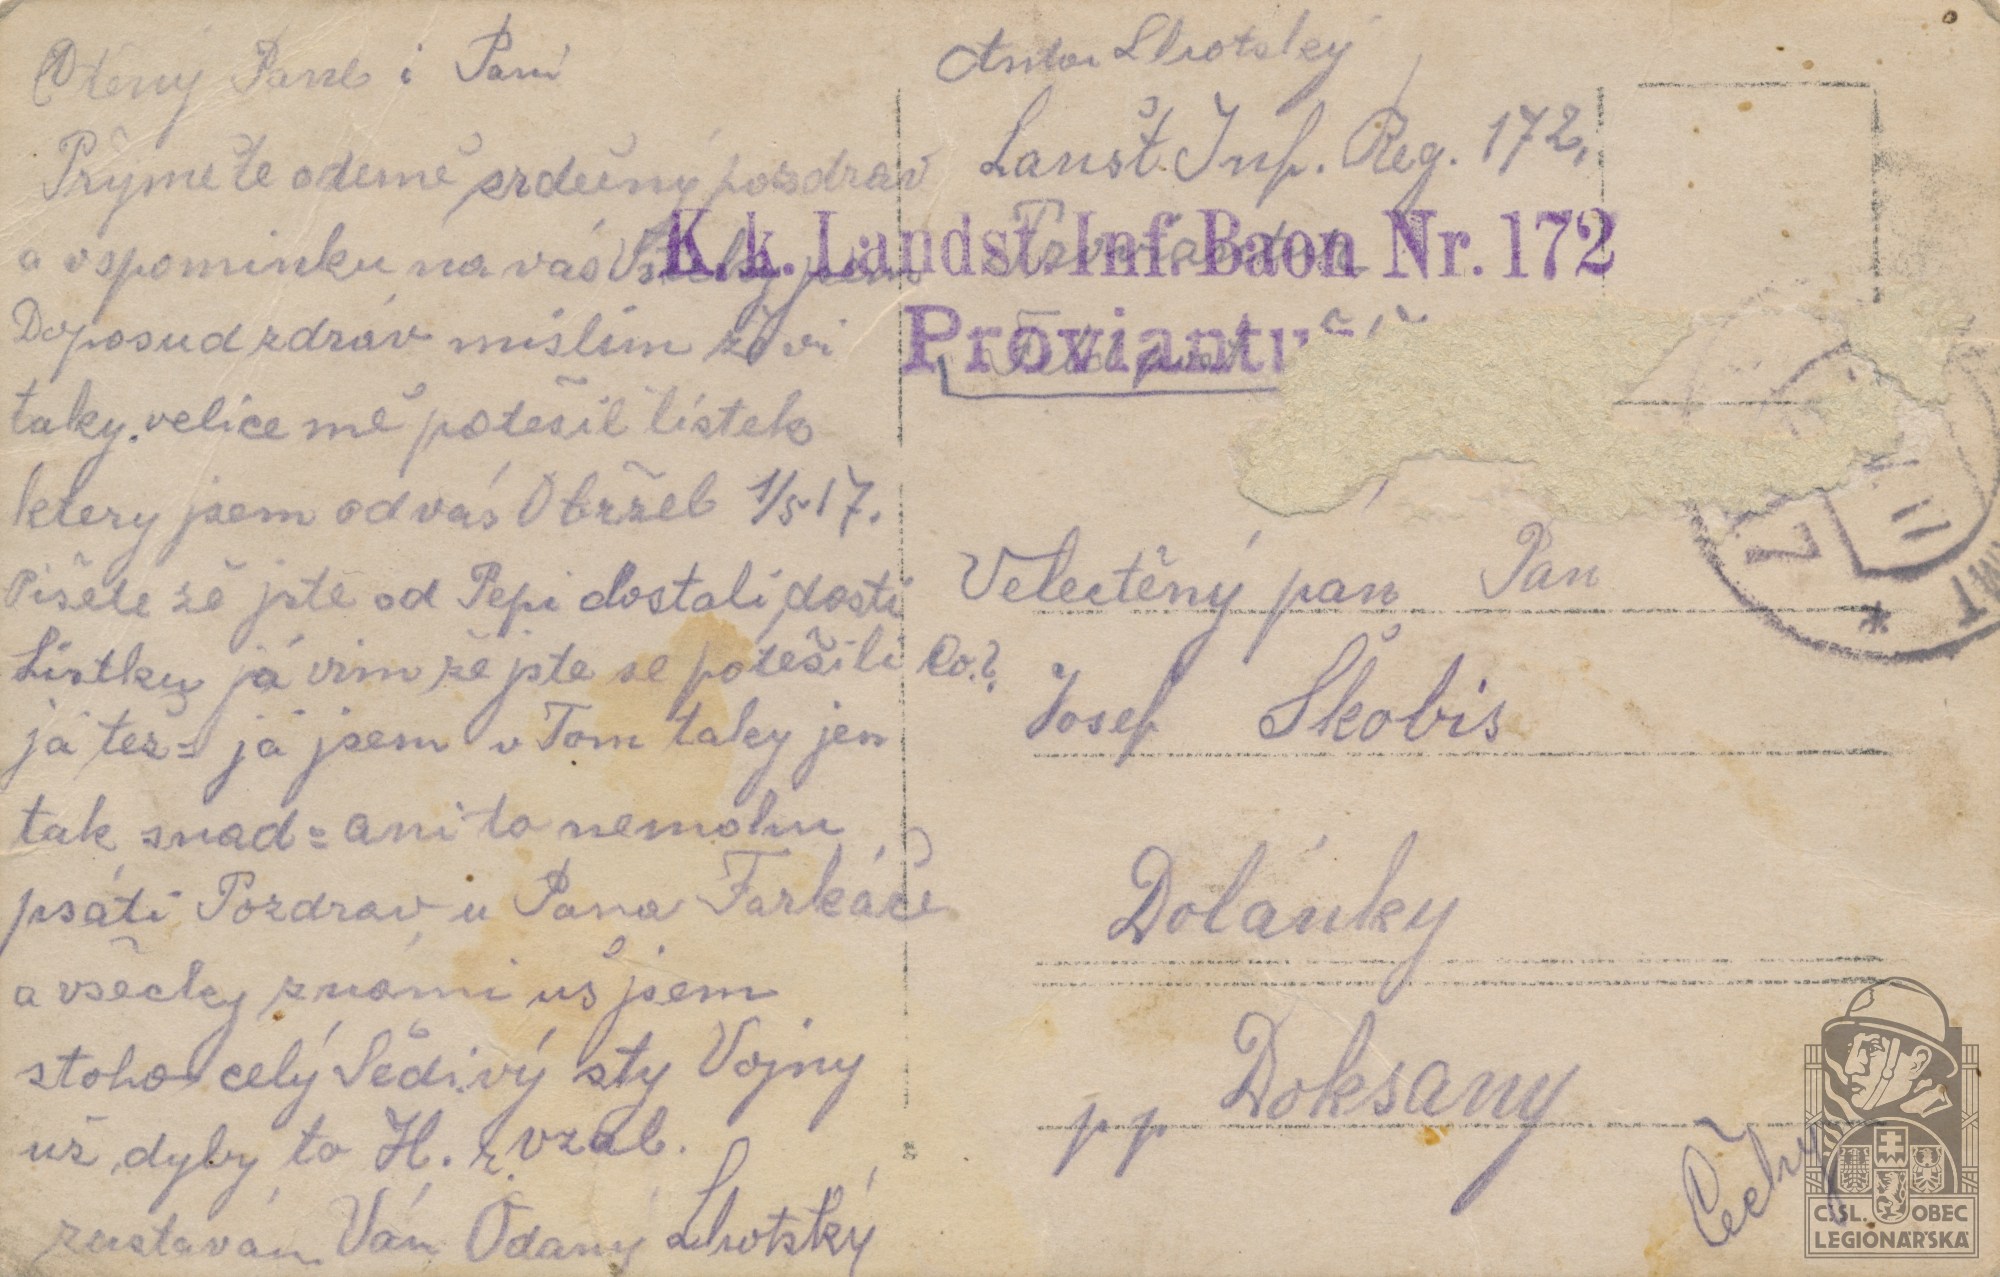 Ctěný Pane i Paní
Přijmete odemě srdečný pozdrav
a vspominku na vás jsem
Doposud zdráv mislím že vi
taky. velice mě potěšil lístek
ktery jsem od vás Obržel 1/5 17.
Píšete že jste od Pepi dostali dosti
Lístku já vim že jste se potěšili Co?
já tež = já jsem v Tom taky jen
tak snad = ani to nemohu
psáti Pozdrav u Pana Farkáče
a všecky známi uš jsem
stoho celý Šedivý sty Vojny
uš dyby to H. r. vzal.
zustaván Ván Odaný Lhotský
Anton Lhotský
Lanšt. Inf. Reg. 172,
K. k. Landst. Inf. Baon Nr. 172
Velectěný pan Pan
Josef Škobis
Dolánky
pp Doksany
Čechy
ČSL. OBEC
LEGIONÁŘSKÁ